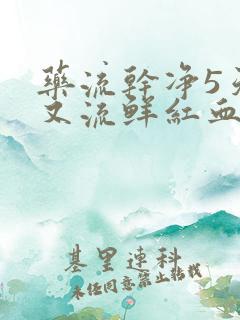 藥流幹净5天
又流鲜紅血
基里连科
未经同意禁止转载